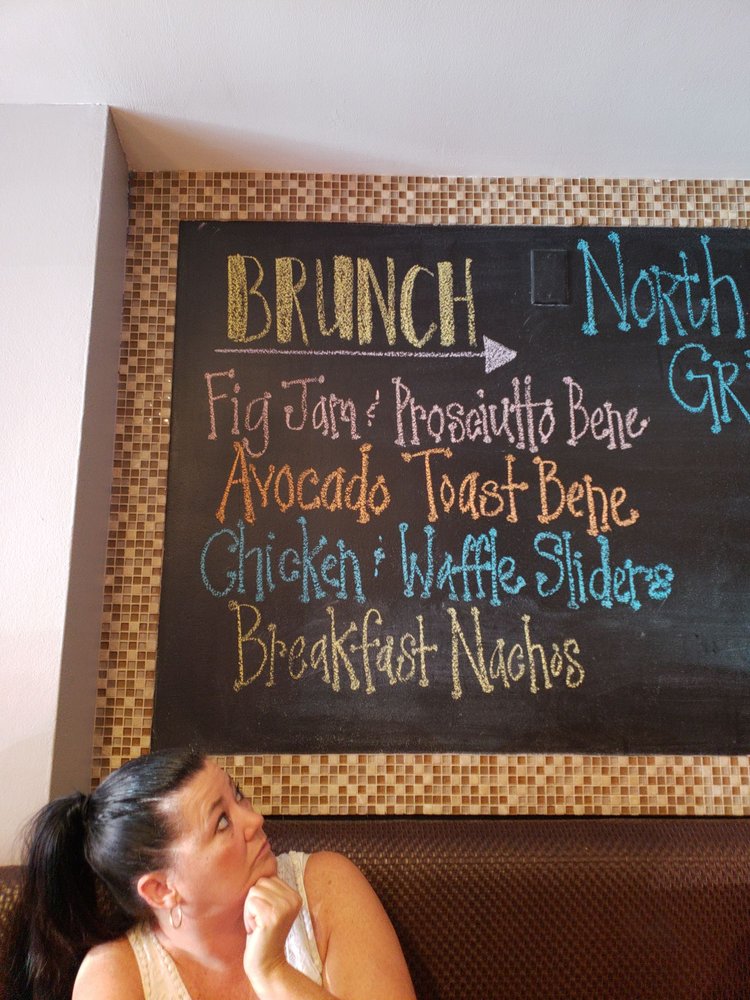 BRUNCH
Fig Jam & Prosciutto Bene
Avocado Toast Bene
Chicken & Waffle Sliders
Breakfast Nachos
North